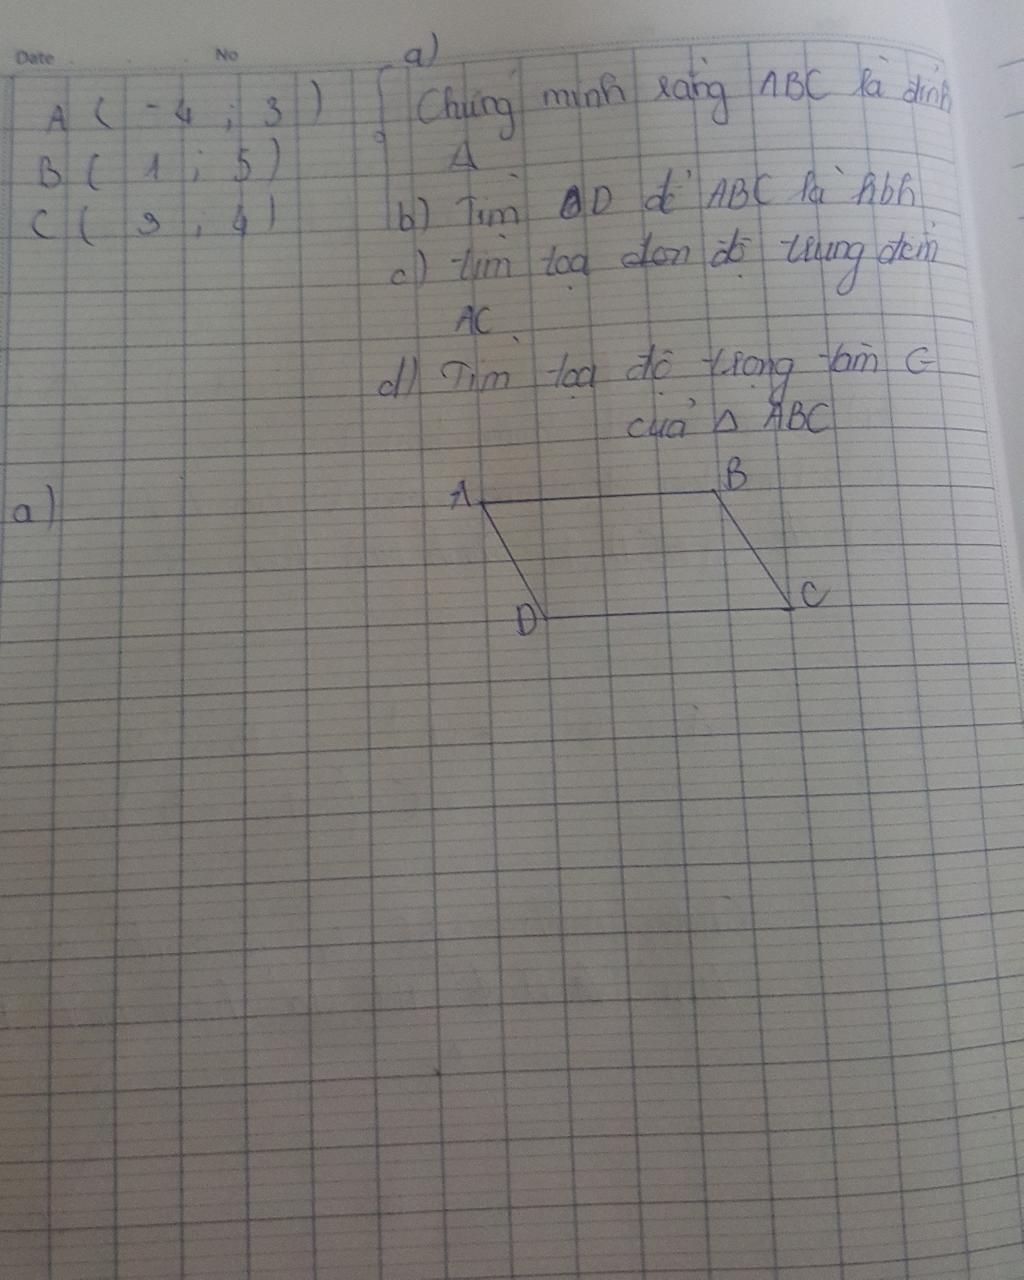 Date No
a)
A ( -4 ; 3 ) Chúng minh rằng ABC là đỉnh
B ( 1 ; 5 ) Δ
C ( 9 ; 4 ) b) Tìm D để ABC là hbh
c) tìm toạ đon độ trung điểm
AC
d) Tìm toạ độ trọng tâm G
của Δ ABC
a)
A B
D C